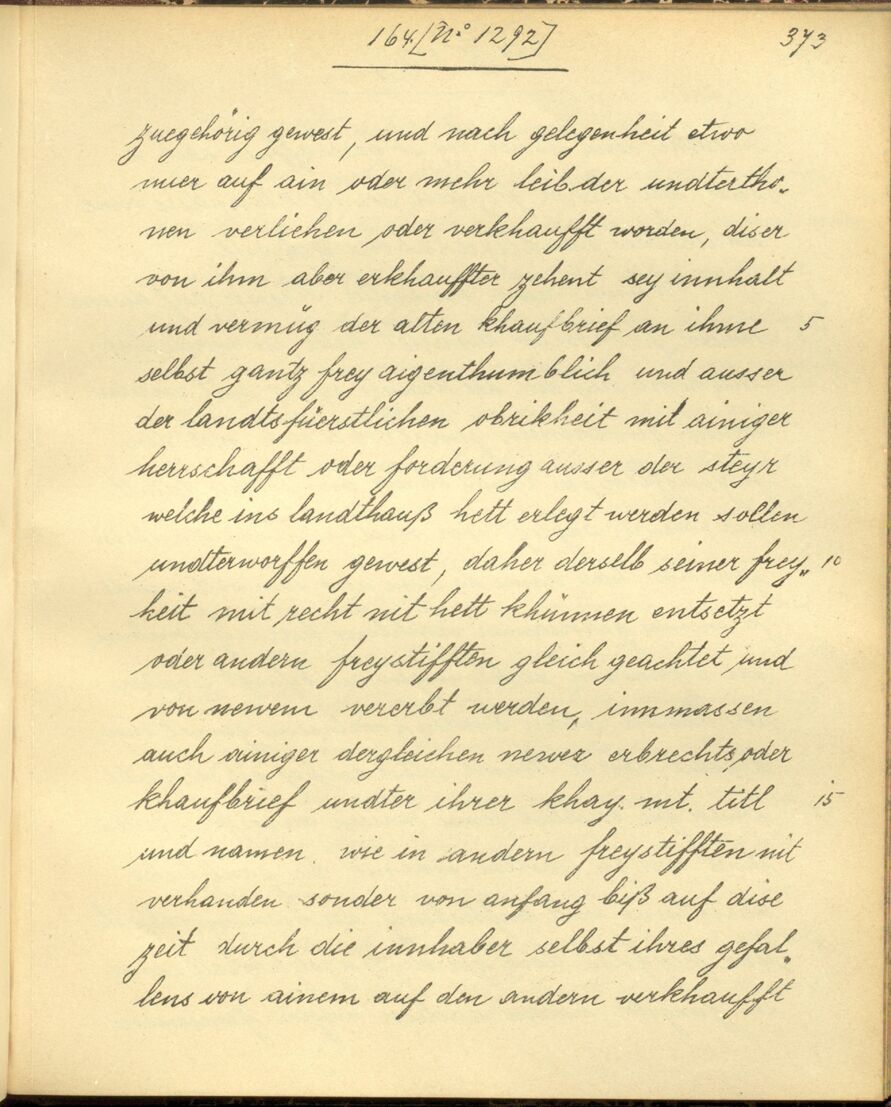 164. [No 1292]
373
zuegehörig gewest, und nach gelegenheit etwo
nuer auf ain oder mehr leib der undtertho„
nen verlichen oder verkhaufft worden, diser
von ihm aber erkhauffter zehent sey innhalt
und vermüg der alten khaufbrief an ihme 5
selbst gantz frey aigenthumblich und ausser
der landtsfüerstlichen obrikheit mit ainiger
herrschafft oder forderung ausser der steyr
welche ins landthauß hett erlegt werden sollen
undterworffen gewest, daher derselb seiner frey„ 10
heit mit recht nit hett khünnen entsetzt
oder andern freystifften gleich geachtet und
von newem vererbt werden, innmassen
auch ainiger dergleichen newer erbrechts oder
khaufbrief undter ihrer khay. mt. titl 15
und namen wie in andern freystifften nit
verhanden sonder von anfang biß auf dise
zeit durch die innhaber selbst ihres gefal„
lens von ainem auf den andern verkhaufft